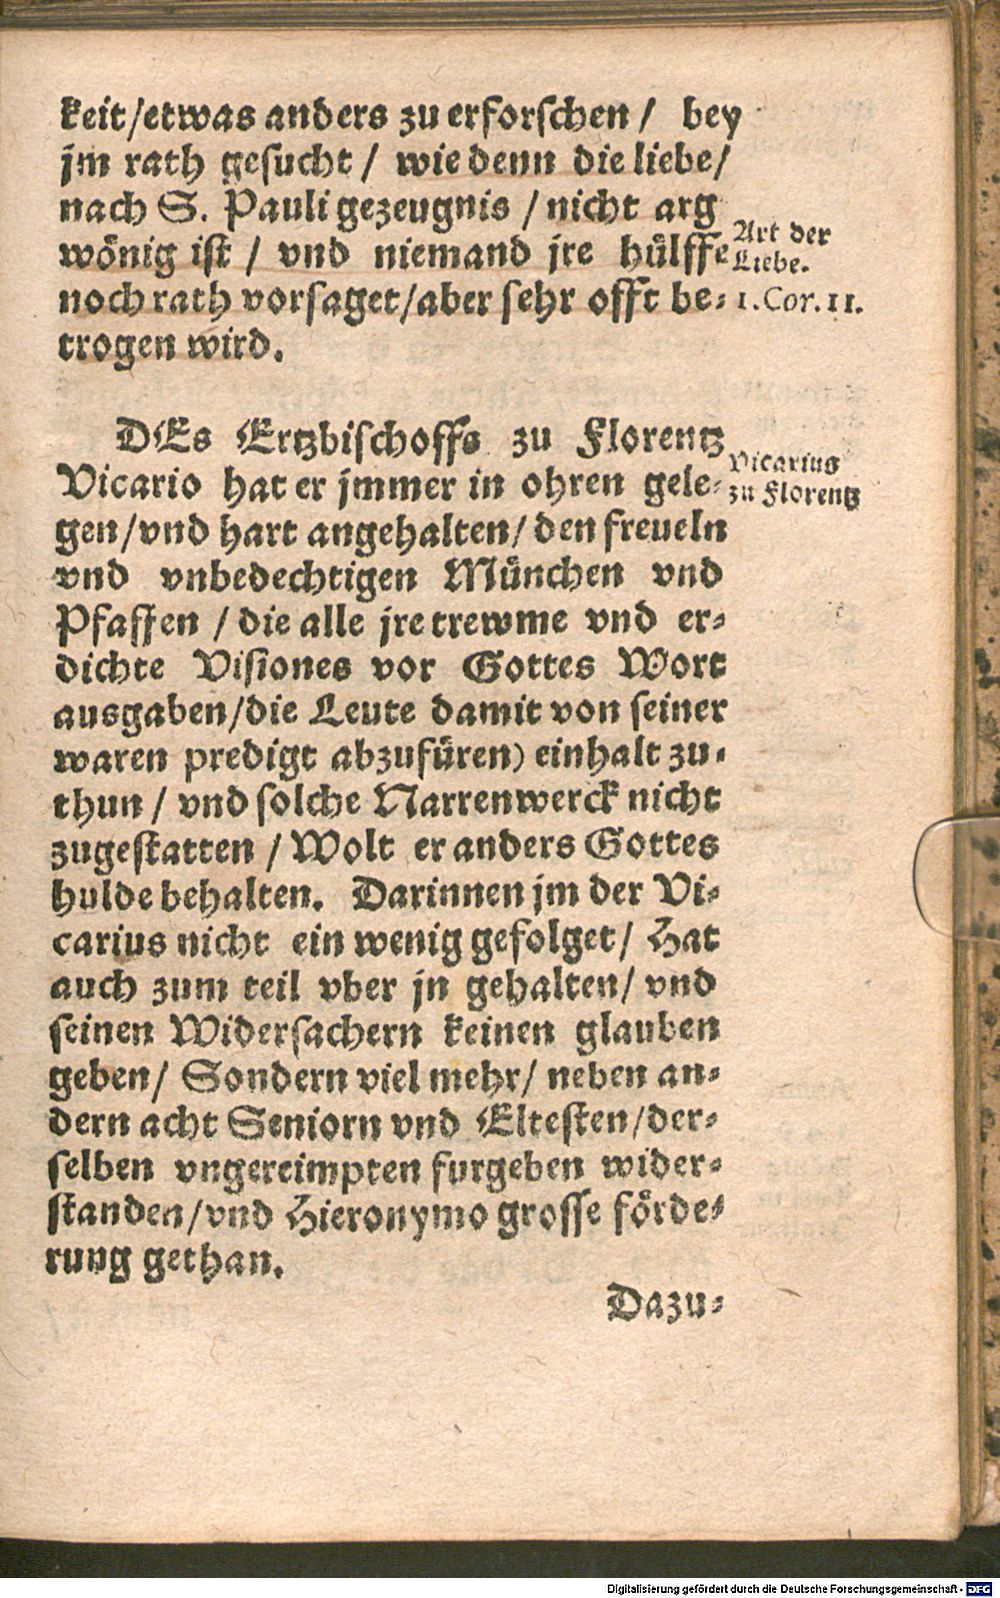 keit/etwas anders zu erforschen/ bey
jm rath gesucht/ wie denn die liebe/
nach S. Pauli gezeugnis/nicht arg
wönig ist/ vnd niemand jre hülffe
Art der
Liebe.
noch rath vorsaget/aber sehr offt be-
1. Cor. 11.
trogen wird.
DEs Ertzbischoffs zu Florentz
Vicario hat er jmmer in ohren gele-
Vicarius
zu Florentz
gen/vnd hart angehalten/den freueln
vnd vnbedechtigen München vnd
Pfaffen/die alle jre trewme vnd er-
dichte Visiones vor Gottes Wort
ausgaben/die Leute damit von seiner
waren predigt abzufüren) einhalt zu-
thun/ vnd solche Narrenwerck nicht
zugestatten/Wolt er anders Gottes
hulde behalten. Darinnen jm der Vi-
carius nicht ein wenig gefolget/ Hat
auch zum teil vber jn gehalten/ vnd
seinen Widersachern keinen glauben
geben/ Sondern viel mehr/ neben an-
dern acht Seniorn vnd Eltesten/der-
selben vngereimpten furgeben wider-
standen/vnd Hieronymo grosse förde-
rung gethan.
Dazu-
Digitalisierung gefördert durch die Deutsche Forschungsgemeinschaft - DFG